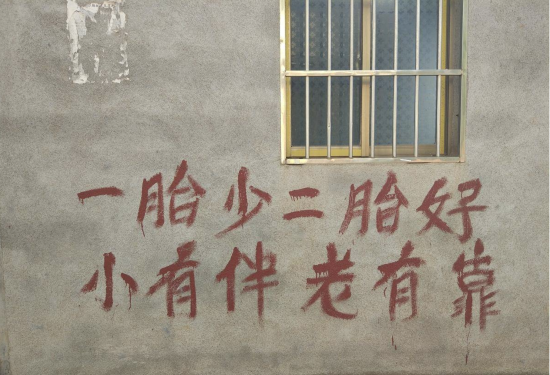 一胎少二胎好
小有伴老有靠